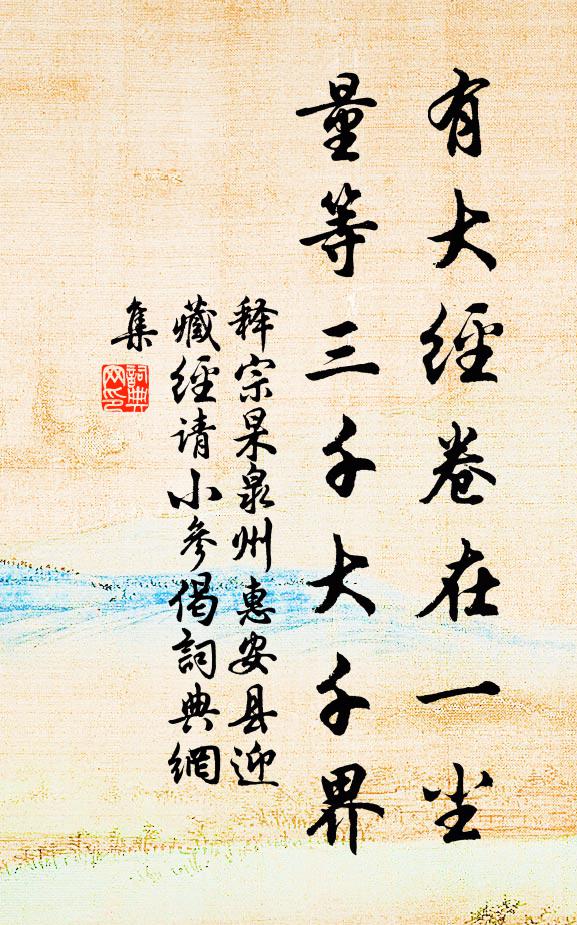 有大經卷在一尘
量等三千大千界
释宗杲泉州惠安县迎
藏經请小參偈詞典網
集
詞典
网印